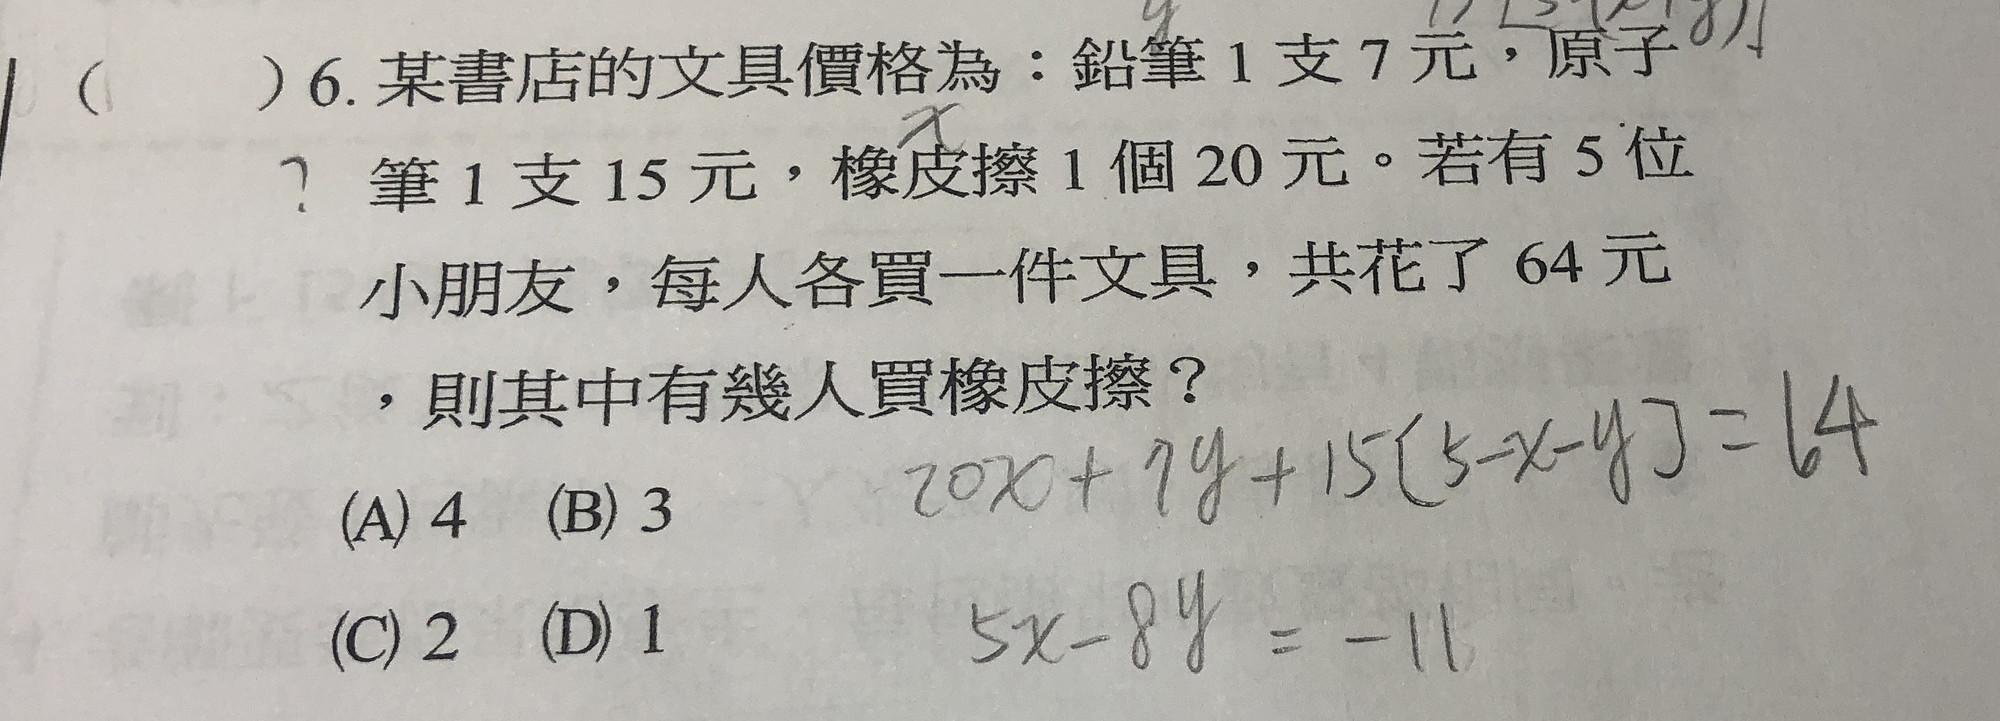 y
( ) 6. 某書店的文具價格為：鉛筆 1 支 7 元，原子
x
? 筆 1 支 15 元，橡皮擦 1 個 20 元。若有 5 位
小朋友，每人各買一件文具，共花了 64 元
，則其中有幾人買橡皮擦？
20x+7y+15[5-x-y]=64
(A) 4 (B) 3
5x-8y=-11
(C) 2 (D) 1